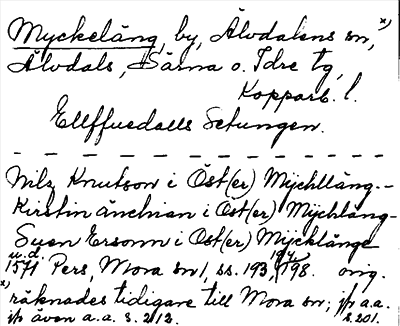 Myckeläng, by, Älvdalens sn, x)
Älvdals, Särna o. Idre tg,
Kopparb. l.
Ellffuedalls Setungen.
Nilz Knutson i Öst(er) Mÿchlläng.-
Kirstin änchian i Öst(er) Mÿchläng-
Suen Ersonn i Öst(er) Mÿcklänge
u.d.
1571 Pers, Mora sn 1, ss. 193, 194, 198. orig.
x) räknades tidigare till Mora sn; jfr a.a.
jfr även a.a. s. 212. s. 201.